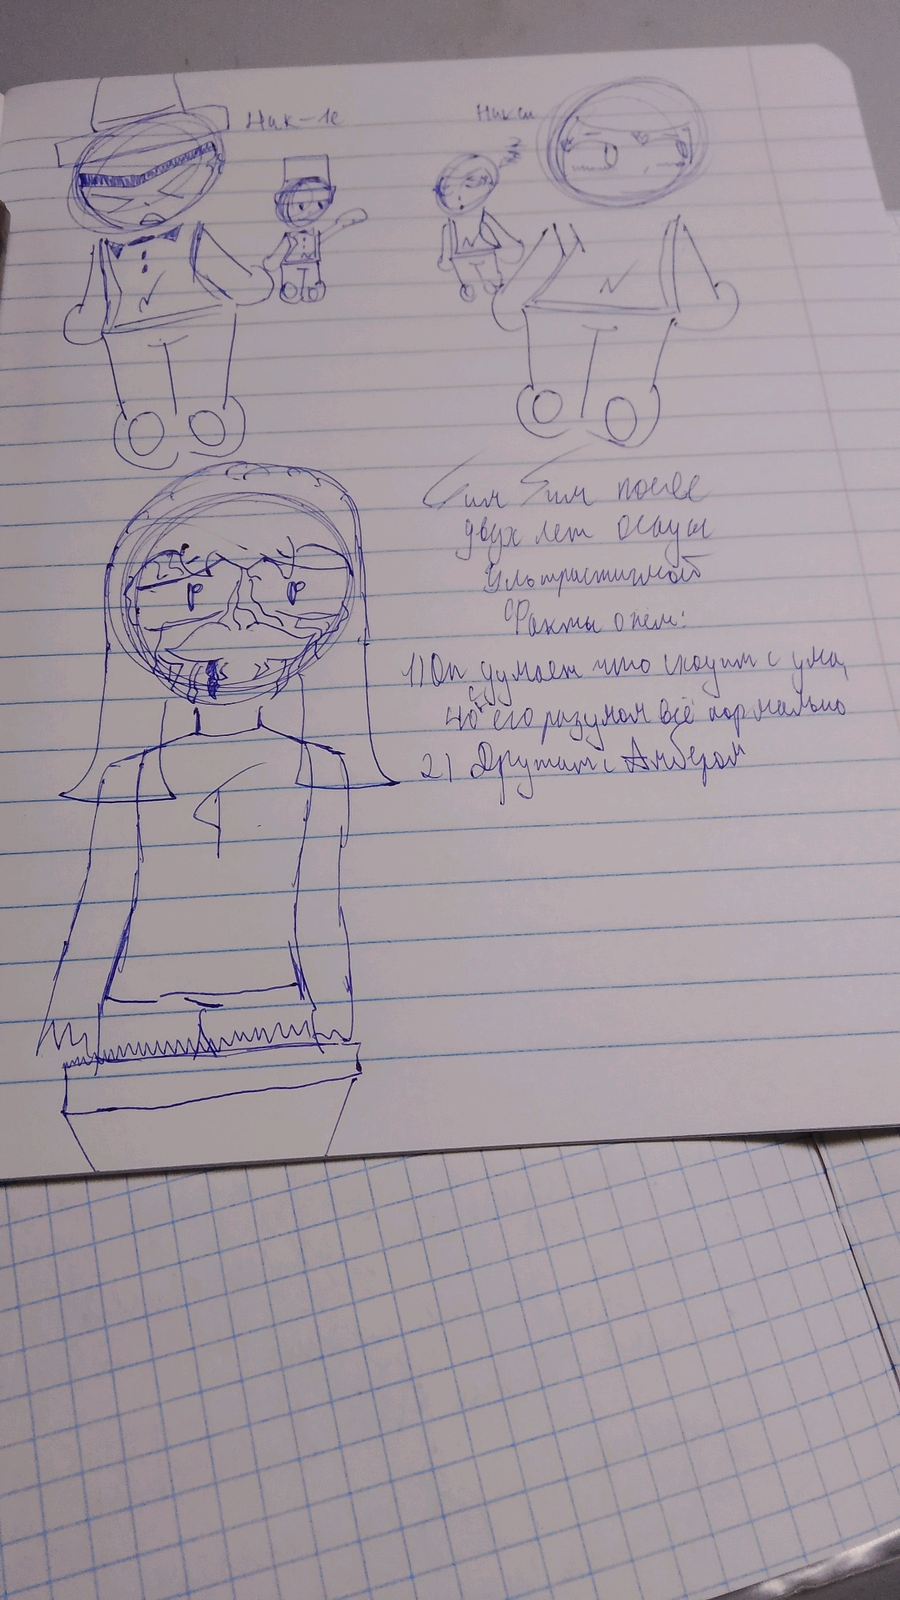 Ник-1е
Никси
Сим Сим после
двух лет осады
Ультрастигмой
Факты о нём:
1) Он думает что сходит с ума,
но с его разумом всё нормально
2) Дружит с Амбером